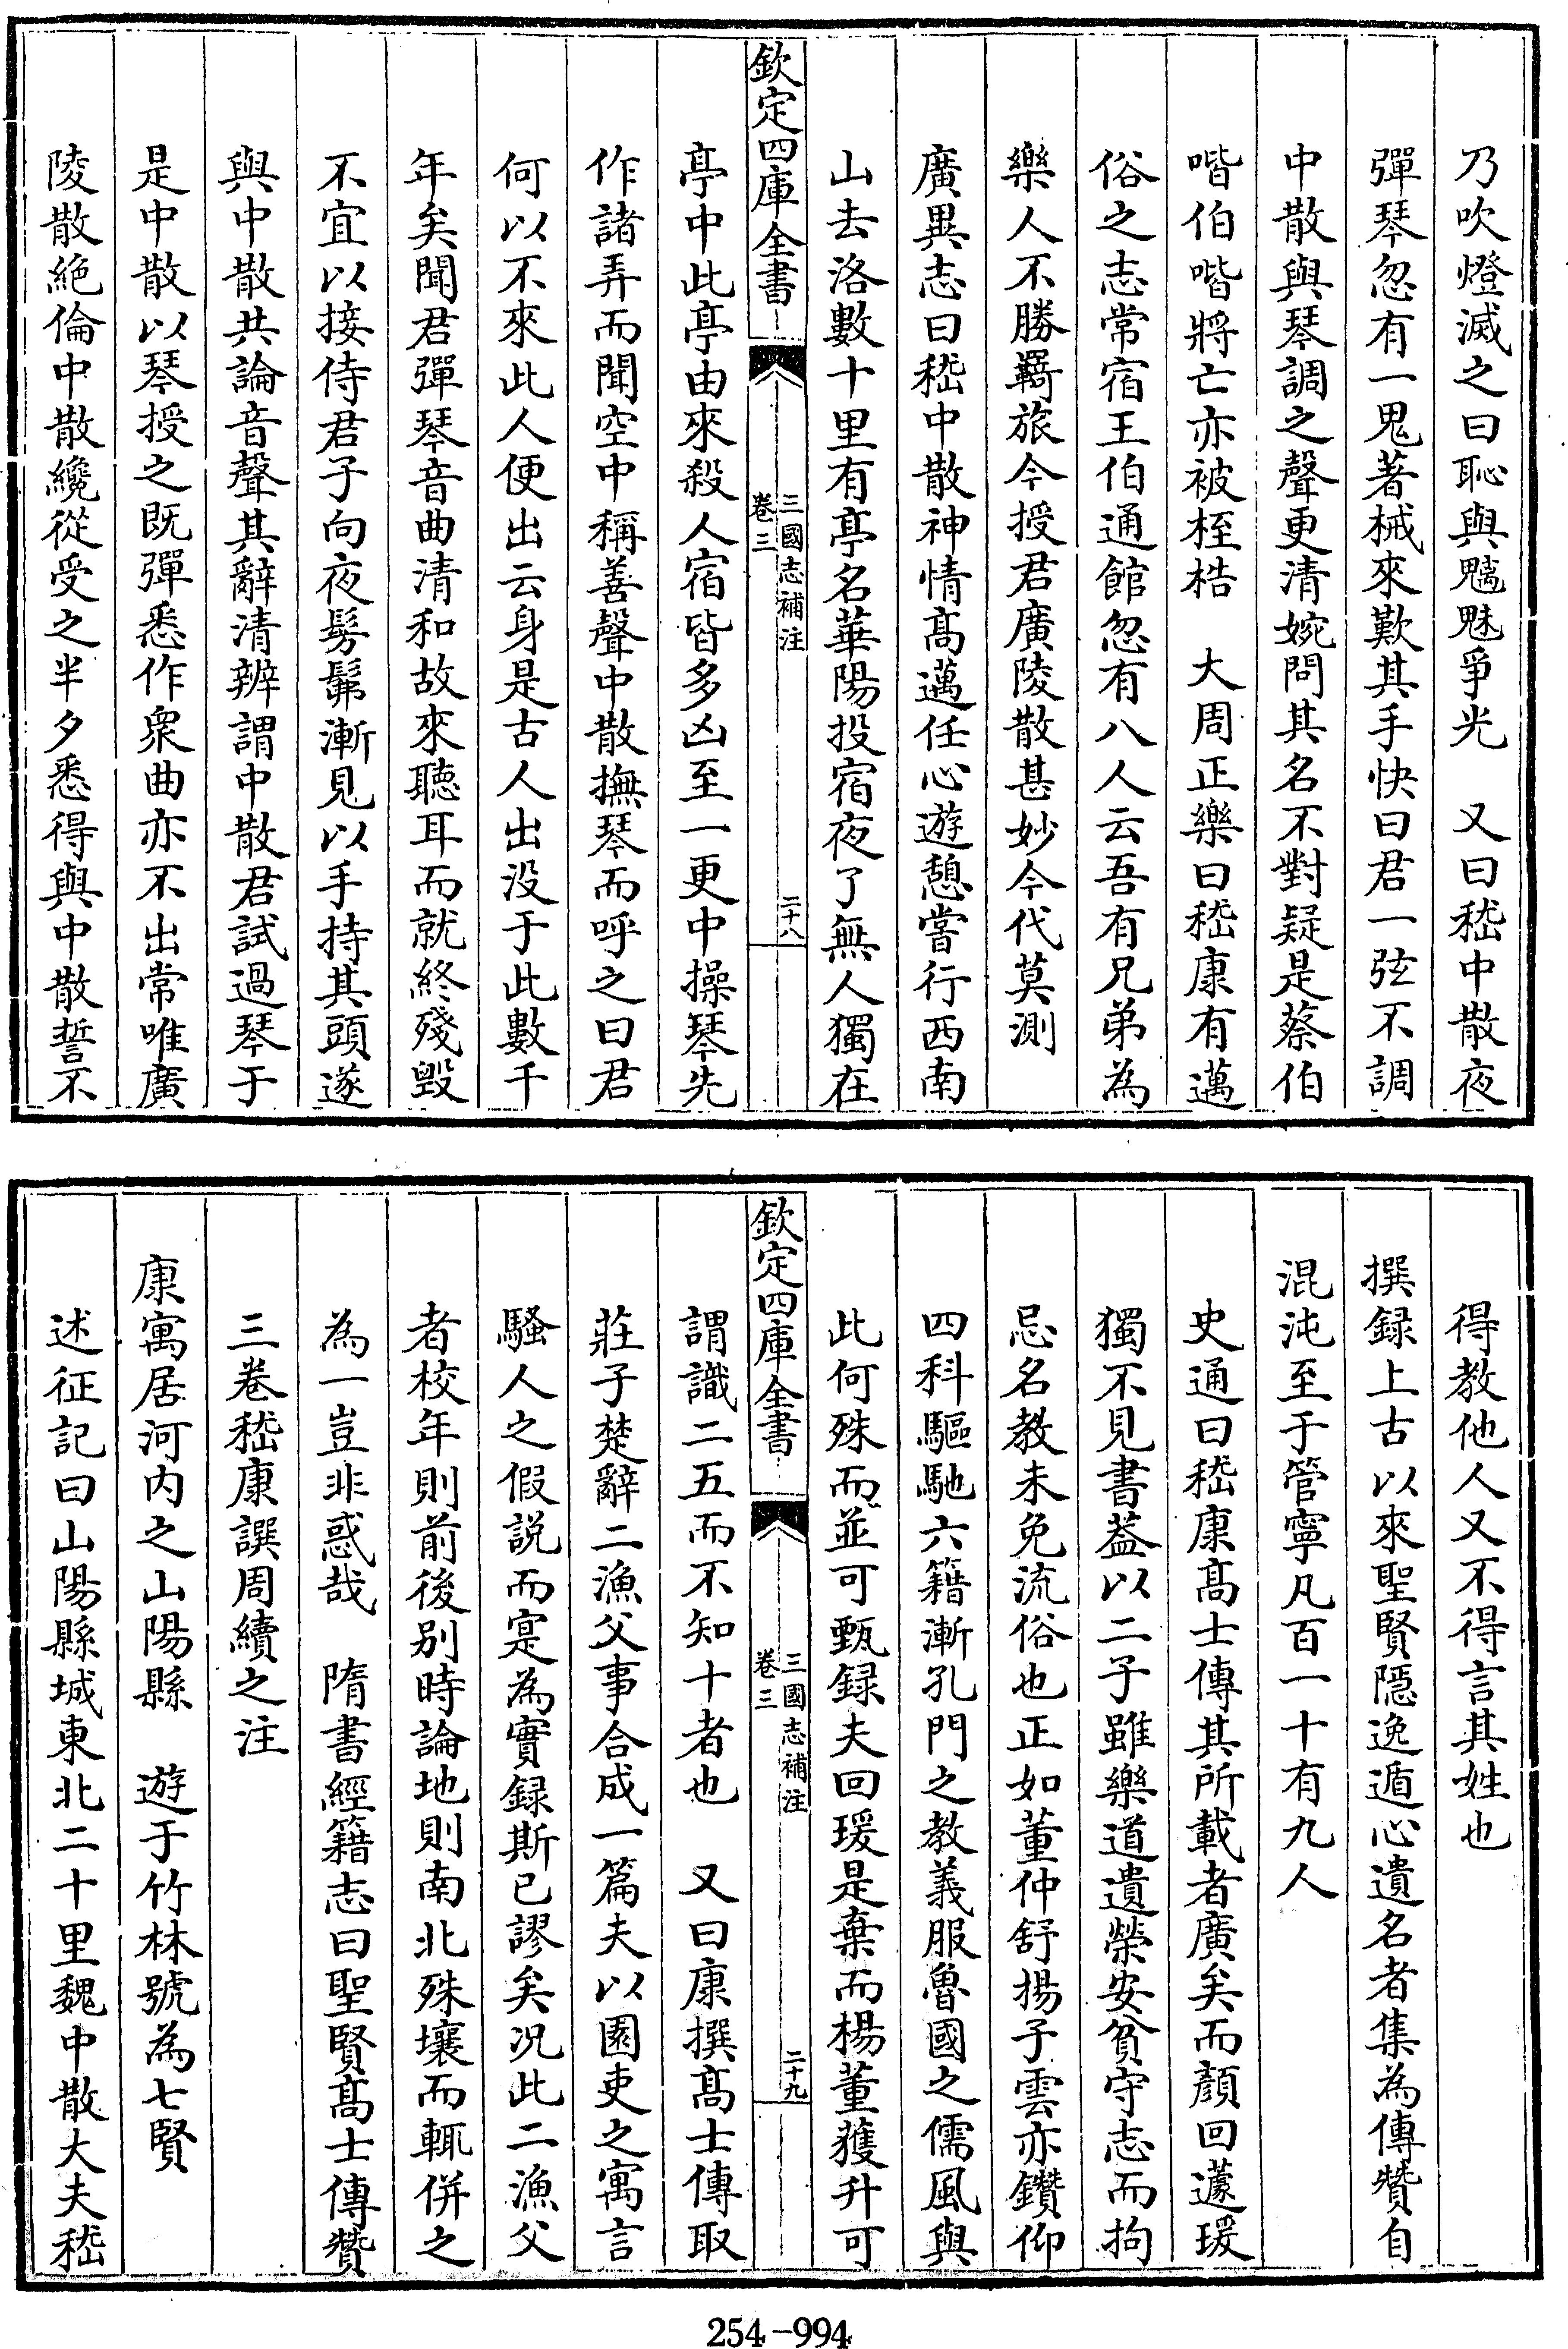 乃吹燈滅之曰恥與魑魅爭光　又曰嵇中散夜
彈琴忽有一鬼著械來歎其手快曰君一弦不調
中散與琴調之聲更清婉問其名不對疑是蔡伯
喈伯喈將亡亦被桎梏　大周正樂曰嵇康有邁
俗之志常宿王伯通館忽有八人云吾有兄弟為
樂人不勝羇旅今授君廣陵散甚妙今代莫測
廣異志曰嵇中散神情髙邁任心遊憩嘗行西南
山去洛數十里有亭名華陽投宿夜了無人獨在
欽定四庫全書
三國志補注
卷三
二十八
亭中此亭由來殺人宿皆多凶至一更中操琴先
作諸弄而聞空中稱善聲中散撫琴而呼之曰君
何以不來此人便出云身是古人出没于此數千
年矣聞君彈琴音曲清和故來聽耳而就終殘毀
不宜以接侍君子向夜髣髴漸見以手持其頭遂
與中散共論音聲其辭清辨謂中散君試過琴于
是中散以琴授之既彈悉作衆曲亦不出常唯廣
陵散絶倫中散纔從受之半夕悉得與中散誓不
得教他人又不得言其姓也
撰録上古以來聖賢隱逸遁心遺名者集為傳贊自
混沌至于管寧凡百一十有九人
史通曰嵇康髙士傳其所載者廣矣而顔回蘧瑗
獨不見書葢以二子雖樂道遺榮安貧守志而拘
忌名教未免流俗也正如董仲舒揚子雲亦鑽仰
四科驅馳六籍漸孔門之教義服魯國之儒風與
此何殊而並可甄録夫回瑗是棄而楊董獲升可
欽定四庫全書
三國志補注
卷三
二十九
謂識二五而不知十者也　又曰康撰髙士傳取
莊子楚辭二漁父事合成一篇夫以園吏之寓言
騷人之假説而寔為實録斯已謬矣况此二漁父
者校年則前後别時論地則南北殊壤而輒併之
為一豈非惑哉　隋書經籍志曰聖賢髙士傳贊
三卷嵇康譔周續之注
康寓居河内之山陽縣　遊于竹林號為七賢
述征記曰山陽縣城東北二十里魏中散大夫嵇
254-994